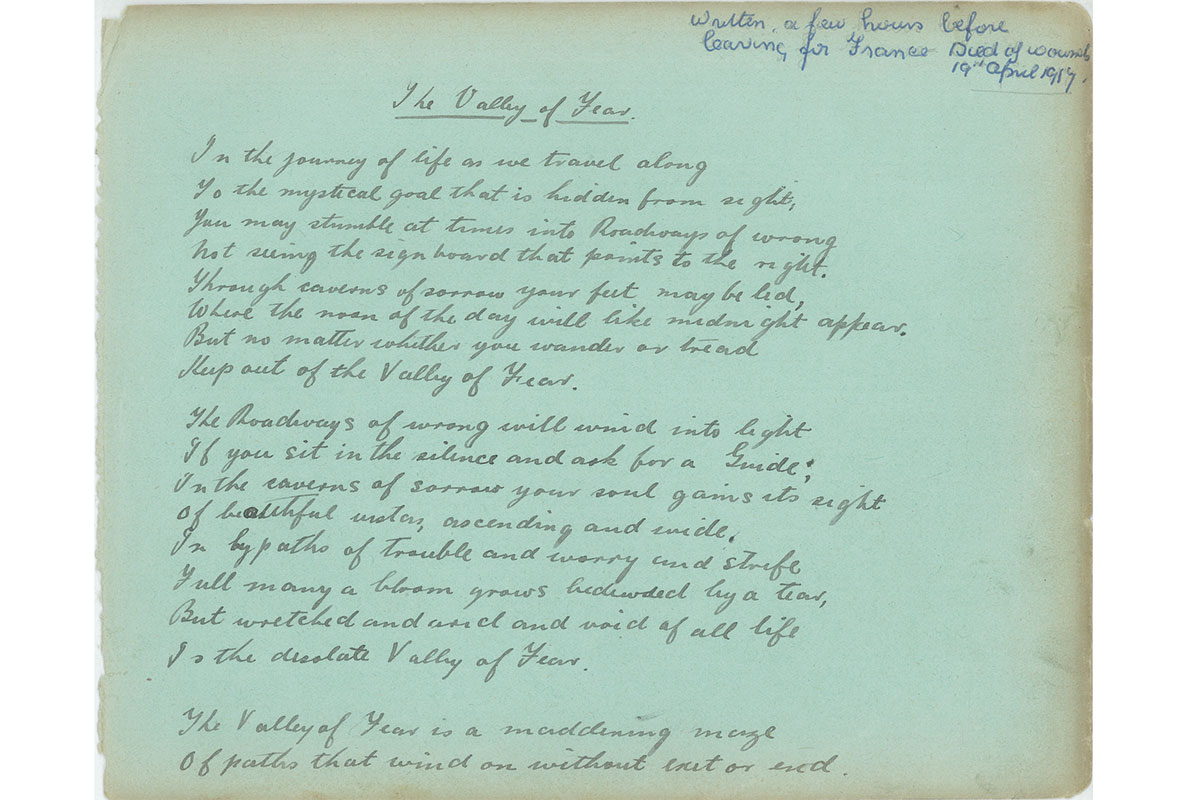 Written, a few hours before
leaving for France Died of wounds
19th April 1917.
The Valley of Fear.
In the journey of life as we travel along
To the mystical goal that is hidden from sight,
You may stumble at times into Roadways of wrong
Not seeing the sign board that points to the right.
Through caverns of sorrow your feet may be led,
Where the noon of the day will like midnight appear.
But no matter whether you wander or tread
Keep out of the Valley of Fear.
The Roadways of wrong will wind into light
If you sit in the silence and ask for a Guide;
In the caverns of sorrow your soul gains its sight
Of beautiful vistas, ascending and wide.
In bypaths of trouble and worry and strife
Full many a bloom grows bedewed by a tear,
But wretched and arid and void of all life
Is the desolate Valley of Fear.
The Valley of Fear is a maddening maze
Of paths that wind on without exit or end.